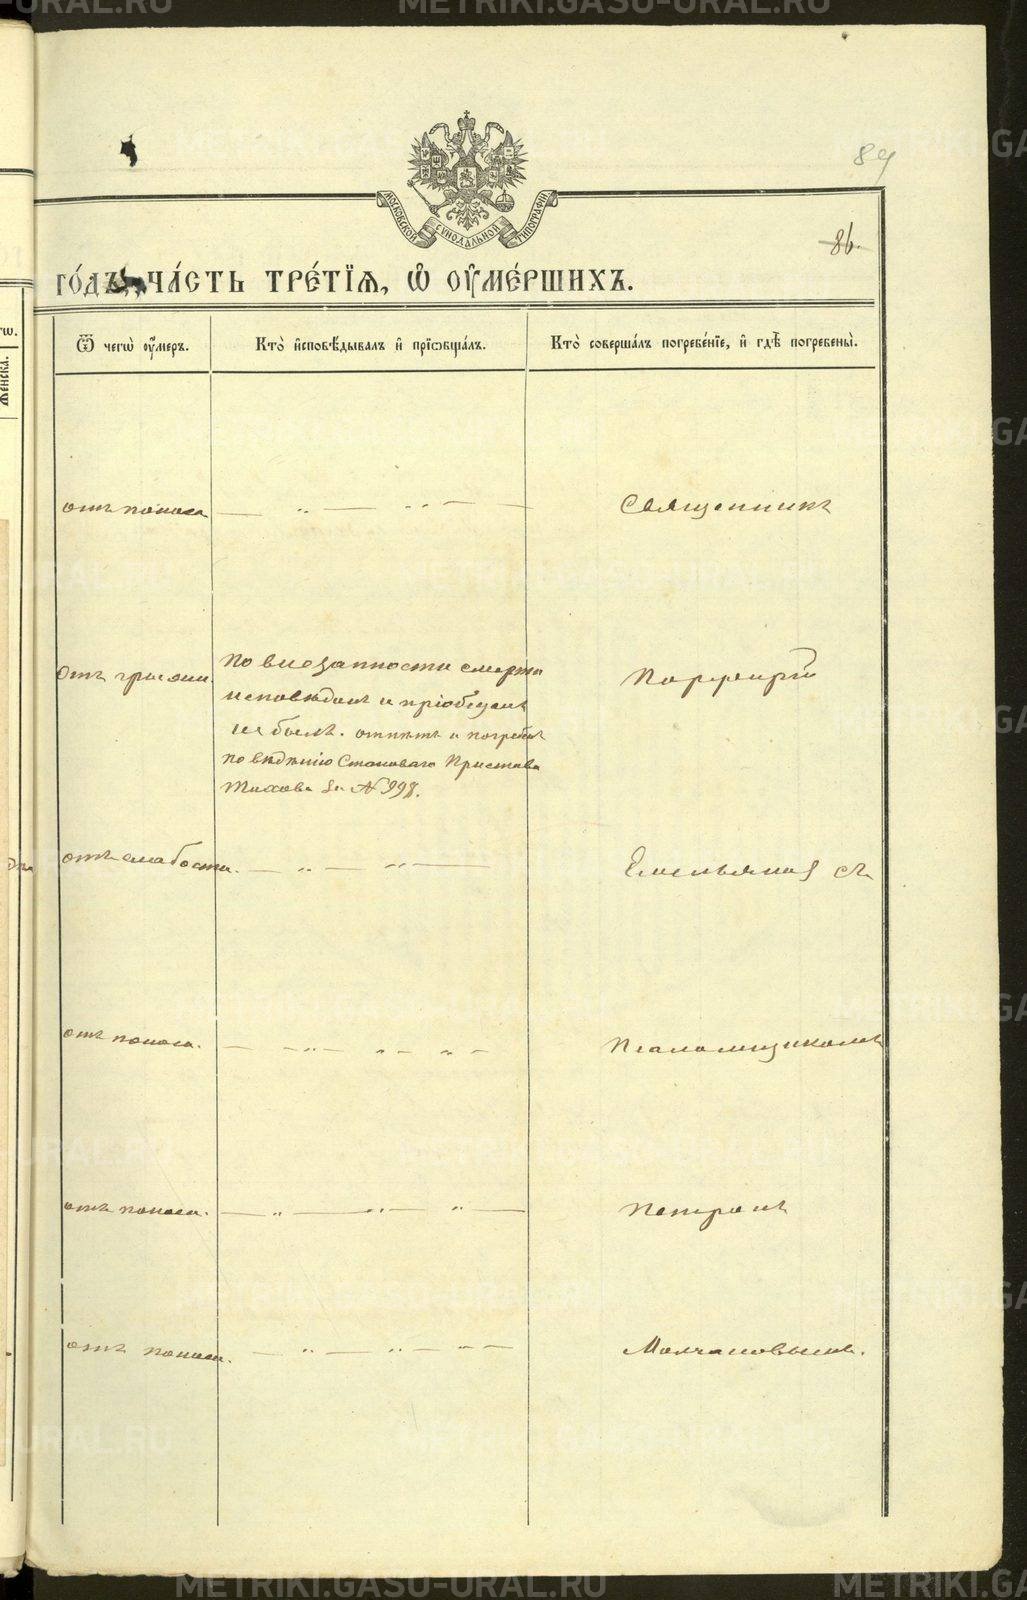 METRIKI.GASU-URAL.RU
МОСКОВСКОЙ СѴНОДАЛЬНОЙ ТИПОГРАФІИ
89
86.
го́дъ, ча́сть тре́тїѧ, ѡ҆ ᲂу҆ме́ршихъ.
Ѿ чегѡ̀ ᲂу҆́меръ.
Кто̀ и҆сповѣ́дывалъ и҆ прїѡбща́лъ.
Кто̀ соверша́лъ погребе́нїе, и҆ гдѣ̀ погребены̀.
Же́нска.
отъ поноса
Священникъ
отъ
По внезапности смерти
исповѣданъ и пріобщенъ
не былъ. отпѣтъ и погребенъ
по вѣденію Становаго Пристава
за № 998.
Порфирій
отъ слабости.
Емельяновъ съ
отъ поноса.
Псаломщикомъ
отъ поноса.
Петромъ
отъ поноса.
Молчановымъ.